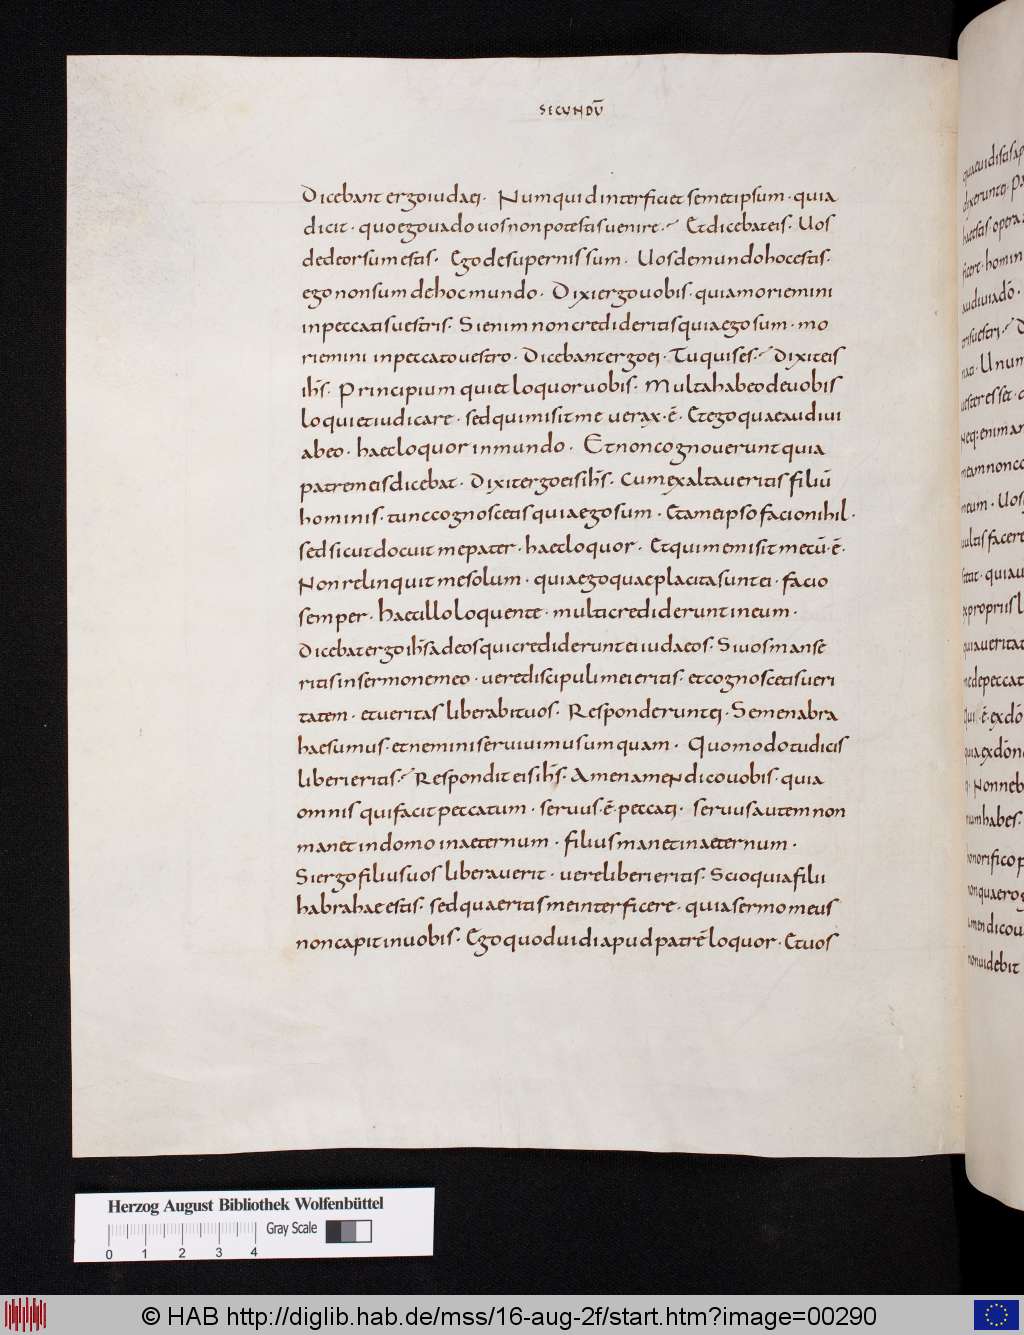 SECUNDŪ
Dicebant ergo iudaei · Numquid interficiet semetipsum · quia
dicit · quo ego uado uos non potestis uenire · Et dicebat eis · Uos
de deorsum estis · Ego de supernis sum · Uos de mundo hoc estis ·
ego non sum de hoc mundo · Dixi ergo uobis · quia moriemini
in peccatis uestris · Si enim non credideritis quia ego sum · mo
riemini in peccato uestro · Dicebant ergo ei · Tu quis es · Dixit eis
ihs̄ · Principium qui et loquor uobis · Multa habeo de uobis
loqui et iudicare · sed qui misit me uerax · ē · Et ego quae audiui
abeo · haec loquor in mundo · Et non cognouerunt quia
patrem eis dicebat · Dixit ergo eis ihs̄ · Cum exaltaueritis filiū
hominis · tunc cognoscetis quia ego sum · Et a me ipso facio nihil ·
sed sicut docuit me pater · haec loquor · Et qui me misit mecū · ē ·
Non relinquit me solum · quia ego quae placita sunt ei · facio
semper · Haec illo loquente · multi crediderunt in eum ·
Dicebat ergo ihs̄ ad eos qui crediderunt ei iudaeos · Si uos manse
ritis in sermone meo · uere discipuli mei eritis · et cognoscetis ueri
tatem · et ueritas liberabit uos · Responderunt ei · Semen abra
hae sumus · et nemini seruiuimus umquam · Quomodo tu dicis
liberi eritis · Respondit eis ihs̄ · Amen amen dico uobis · quia
omnis qui facit peccatum · seruus · ē · peccati · seruus autem non
manet in domo in aeternum · filius manet in aeternum ·
Si ergo filius uos liberauerit · uere liberi eritis · Scio quia filii
habrahae estis · sed quaeritis me interficere · quia sermo meus
non capit in uobis · Ego quod uidi apud patrē loquor · Et uos
Herzog August Bibliothek Wolfenbüttel
Gray Scale
0 1 2 3 4
© HAB http://diglib.hab.de/mss/16-aug-2f/start.htm?image=00290